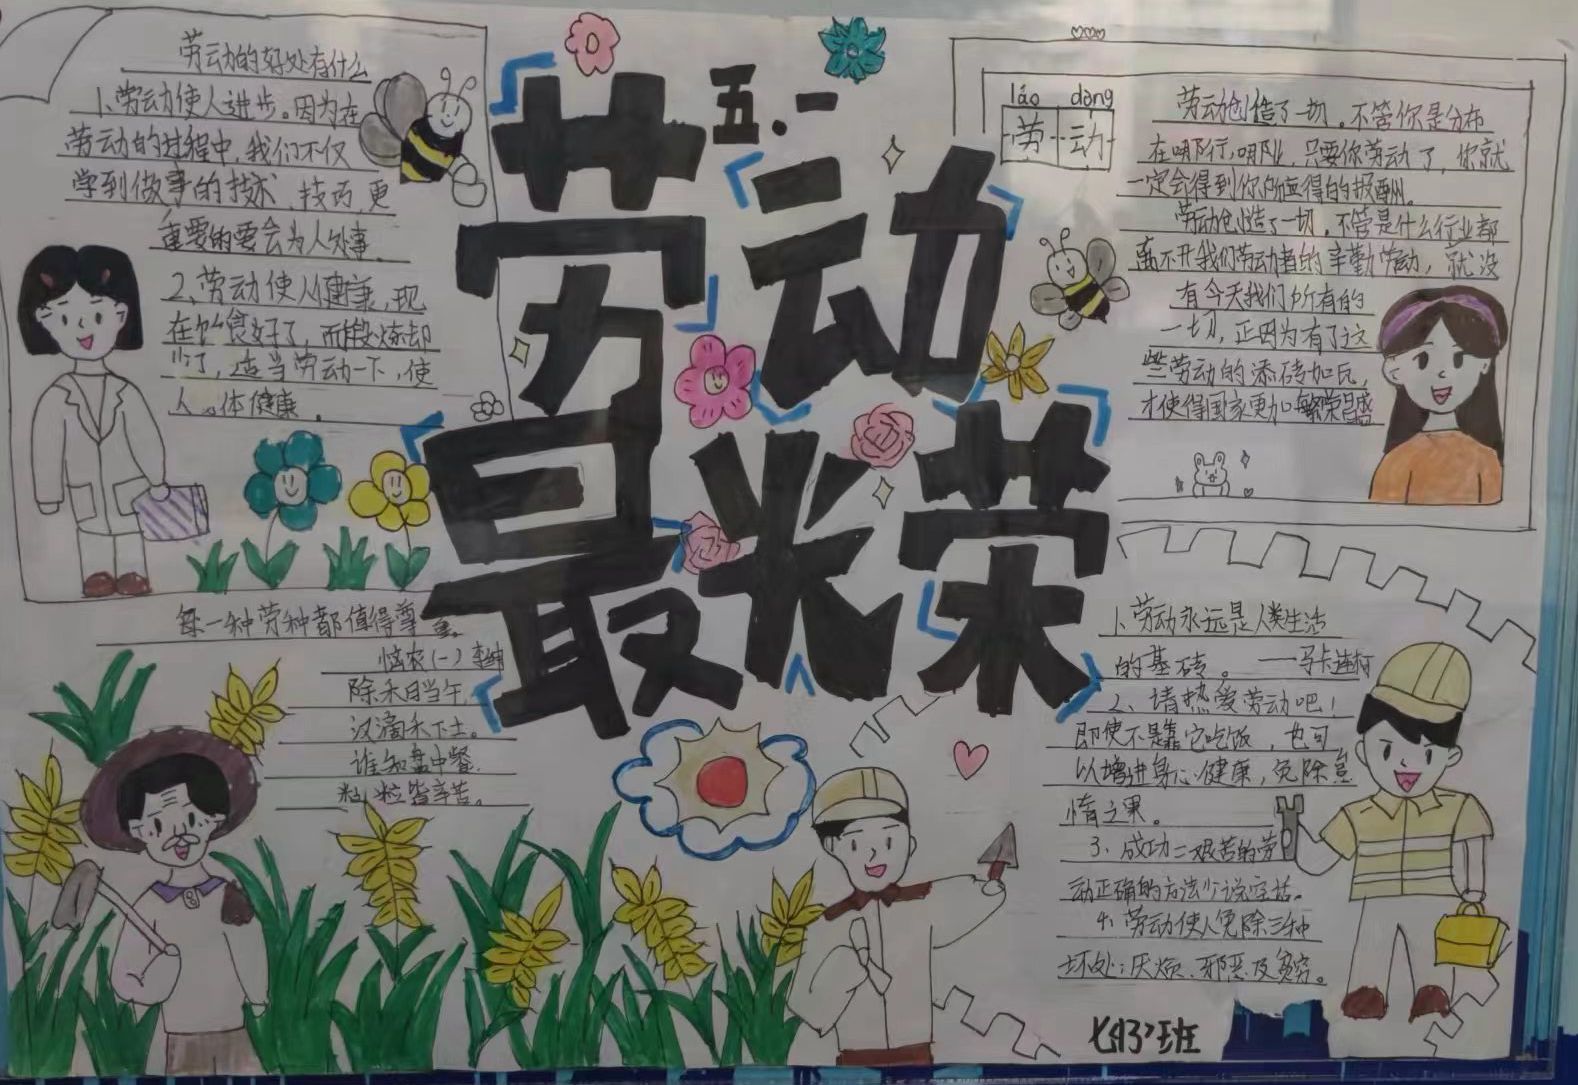 劳动最光荣
五.一
劳动的好处有什么
1、劳动使人进步。因为在
劳动的过程中,我们不仅
学到做事的技术、技巧,更
重要的要会为人处事。
2、劳动使人健康,现
在饮食好了,而锻炼却
少了,适当劳动一下,使
人 体健康。
每一种劳种都值得尊重。
悯农(一) 李绅
除禾日当午,
汉滴禾下土。
谁知盘中餐,
粒粒皆辛苦。
láo dòng
劳动
劳动创造了一切。不管你是分布
在哪行,哪业,只要你劳动了,你就
一定会得到你所应得的报酬。
劳动创造了一切。不管是什么行业都
离不开我们劳动者的辛勤劳动,就没
有今天我们所有的
一切,正因为有了这
些劳动的添砖加瓦,
才使得国家更加繁荣昌盛
1、劳动永远是人类生活
的基础。——马卡连柯
2、请热爱劳动吧!
即使不是靠它吃饭,也可
以增进身心健康,免除怠
惰之果。
3、成功=艰苦的劳
动正确的方法少说空话。
4、劳动使人免除三种
坏处:厌烦、邪恶及贫穷。
班